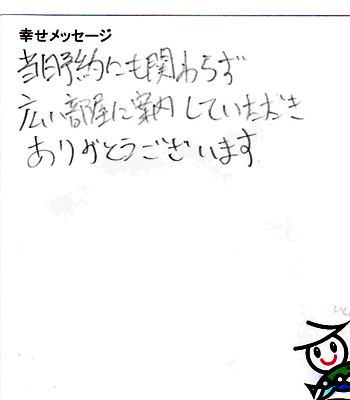 幸せメッセージ
当日予約にも関わらず
広い部屋に案内していただき
ありがとうございます